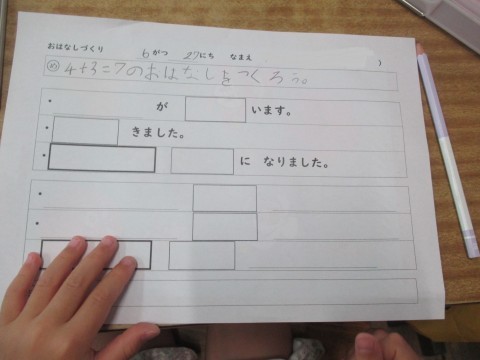 おはなしづくり 6がつ 27にち なまえ )
め 4+3=7のおはなしをつくろう。
・ が います。
・ きました。
・ に なりました。
・
・